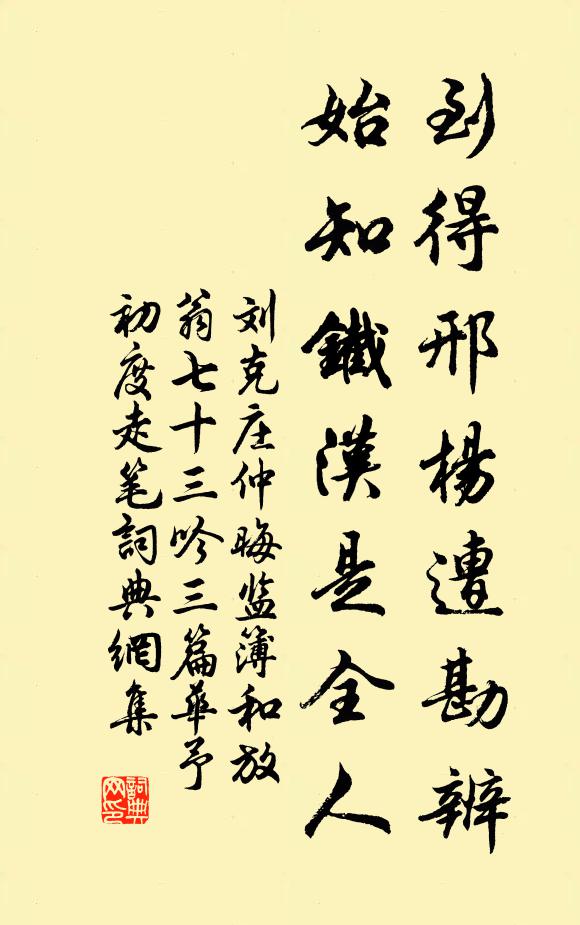 到得邢楊遭勘辨
始知鐵漢是全人
刘克庄仲晦监簿和放
翁七十三吟三篇華予
初度走笔詞典網集
詞典網印